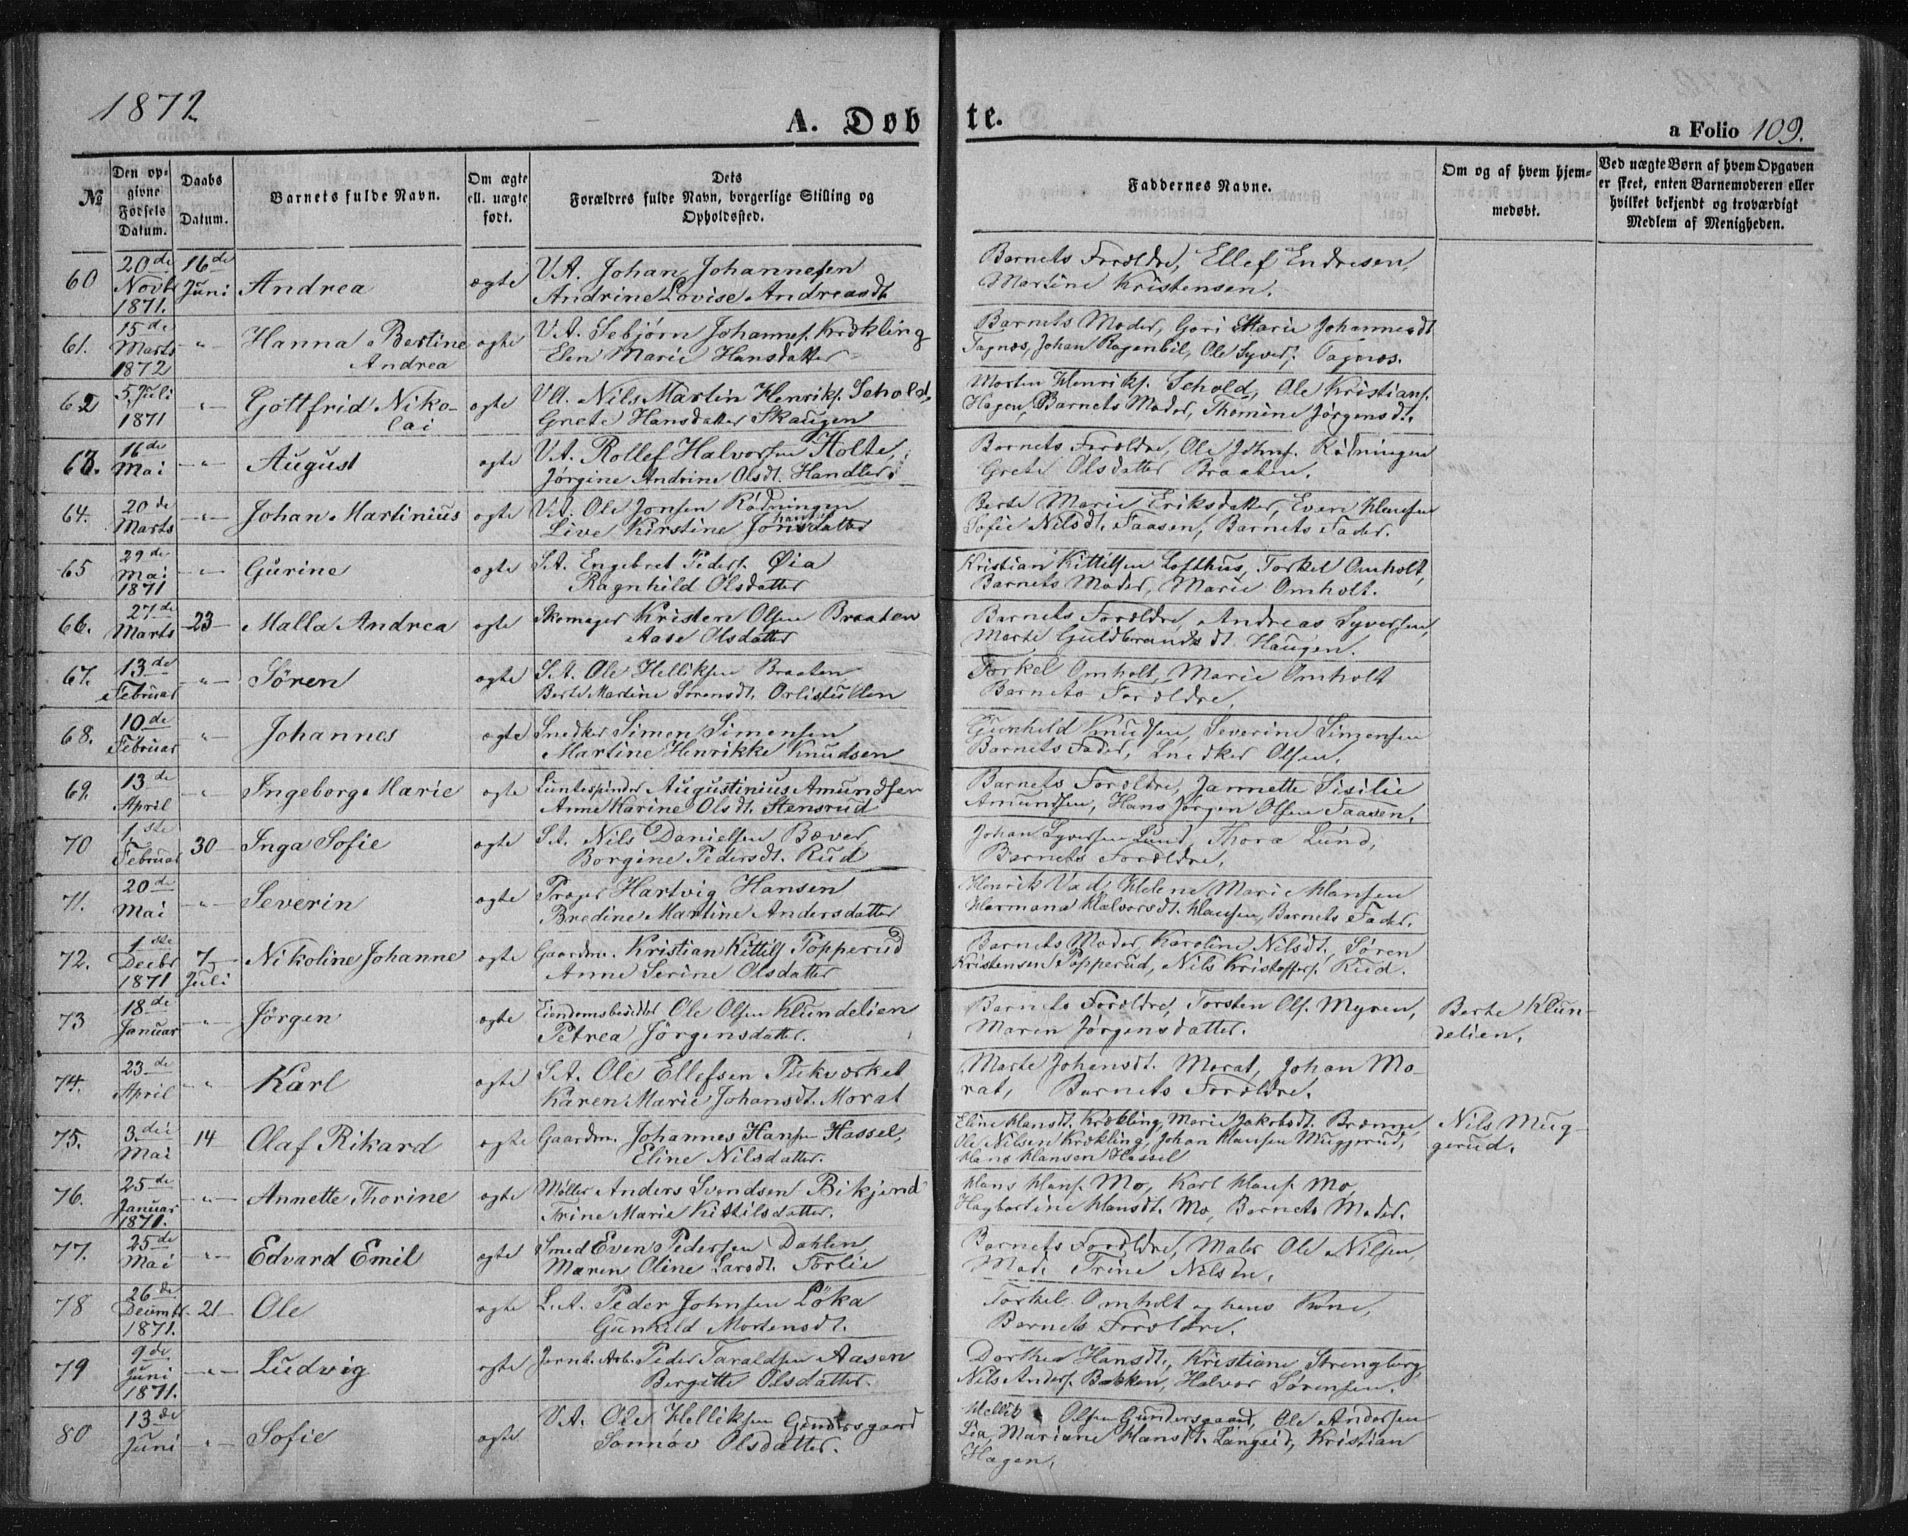 1872
A. Døbte.
a Folio 109.
№
Den opgivne Fødsels Datum.
Daabs Datum.
Barnets fulde Navn.
Om ægte ell. uægte født.
Dets Forældres fulde Navn, borgerlige Stilling og Opholdsted.
Faddernes Navne.
Om og af hvem hjemmedøbt.
Ved uægte Børn af hvem Opgaven er skeet, enten Barnemoderen eller hvilket bekjendt og troværdigt Medlem af Menigheden.
60 20de Novb 1871. 16de Juni Andrea ægte V.A. Johan Johannesen
Andrine Lovise Andreasdt.
Barnets Forældre, Ellef Endresen,
Martine Kristensen.
61. 15de Marts 1872 -"- Hanna Bertine Andrea ægte V.A. Sebjørn Johannes. Krækling
Elen Marie Hansdatter
Barnets Moder, Gori Marie Johannesdt.
Tagnæs, Johan Ragenbil, Ole Syvers. Tagnæs.
62 5. Juli 1871 -"- Gottfrid Nikolai ægte V.A. Nils Martin Henriks. Sehold,
Grete Hansdatter Skaugen
Morten Henriks. Sehold, Ole Kristians.
Hagen, Barnets Moder, Thomine Jørgensdt.
63. 16de Mai -"- August ægte V.A. Rollef Halvorsen Holte,
Jørgine Andrine Olsdt. Handler
Barnets Forældre, Ole Johns. Rødningen
Grete Olsdatter Braaten.
64. 20de Marts -"- Johan Martinius ægte V.A. Ole Jonsen Rødningen
Live Kirstine Jonsdatter
Berte Marie Eriksdatter, Even Hansen
Sofie Nilsdt. Faasen, Barnets Fader.
65 29de Mai 1871 -"- Gurine ægte S.A. Engebret Peders. Øia
Ragnhild Olsdatter
Kristian Kittilsen Lofthus, Torkel Omholt,
Barnets Moder, Marie Omholt.
66. 27de Marts 23 Malla Andrea ægte Skomager Kristen Olsen Braaten
Aase Olsdatter
Barnets Forældre, Andreas Syversen,
Marte Guldbrandsdt. Haugen.
67. 13de Februar -"- Søren ægte S.A. Ole Helliksen Braaten
Berte Martine Sørensdt. Orlistulten
Torkel Omholt, Marie Omholt
Barnets Forældre.
68. 10de Februar -"- Johannes ægte Snedker Simen Simensen
Martine Henrikke Knudsen
Gunhild Knudsen, Severine Simensen
Barnets Fader, Snedker Olsen.
69. 13de April -"- Ingeborg Marie ægte Luntespinder Augustinius Amundsen
Anne Karine Olsdt. Stensrud
Barnets Forældre, Jannette Sisilie
Amundsen, Hans Jørgen Olsen Faasen.
70 1ste Februar 30 Inga Sofie ægte S.A. Nils Danielsen Bæver
Borgine Pedersdt. Rud
Johan Syversen Lund, Thora Lund,
Barnets Forældre.
71. 20de Mai -"- Severin ægte Præger Hartvig Hansen
Bredine Martine Andersdatter
Henrik Vad, Helene Marie Hansen
Hermana Halvorsdt. Hansen, Barnets Fader.
72. 1ste Decbr 1871 7 Juli Nikoline Johanne ægte Gaardm. Kristian Kittils. Popperud
Anne Serine Olsdatter
Barnets Moder, Karoline Nilsdt., Søren
Kristensen Popperud, Nils Kristoffers. Rud.
73 18de Januar -"- Jørgen ægte Eiendomsbesidder Ole Olsen Klundelien
Petrea Jørgensdatter.
Barnets Forældre, Torsten Ols. Myren,
Maren Jørgensdatter.
Berte Klundelien.
74. 23de April -"- Karl ægte S.A. Ole Ellefsen Pukværket
Karen Marie Johansdt. Morat
Marte Johensdt. Morat, Johan Morat, Barnets Forældre.
75. 3die Mai 14 Olaf Rikard ægte Gaardm. Johannes Hansen Hassel,
Eline Nilsdatter.
Eline Hansdt. Krækling, Marie Jakobsdt. Brænne,
Ole Nilsen Krækling, Johan Hansen Muggerud,
Hans Hansen Hassel
Nils Muggerud.
76. 25de Januar 1871. -"- Annette Thorine ægte Møller Anders Svendsen Bikjend
Trine Marie Kittilsdatter.
Hans Hans. Mo, Karl Hans. Mo,
Hagbartine Hansdt. Mo, Barnets Moder.
77. 25de Mai -"- Edvard Emil ægte Smed Even Pedersen Dahlen
Maren Oline Larsdt. Førlie
Barnets Forældre, Maler Ole Nilsen,
Mad. Trine Nilsen.
78 26de Decmbr. 1871. 21 Ole ægte L.A. Peder Johnsen Løka
Gunhild Mortensdt.
Torkel Omholt og hans Kone,
Barnets Forældre.
79 9de Juni 1871. -"- Ludvig ægte Jernb. Arb. Peder Taraldsen Aasen
Bergitte Olsdatter.
Dorthea Hansdt., Kristiane Strengberg
Nils Anders. Bakken, Halvor Sørensen.
80 13de Juni -"- Sofie ægte V.A. Ole Helliksen Gundersgaard
Sonnøv Olsdatter.
Hellik Olsen Gundersgaard, Ole Andersen
Lia, Mariane Hansdt. Langeid, Kristian
Hagen.